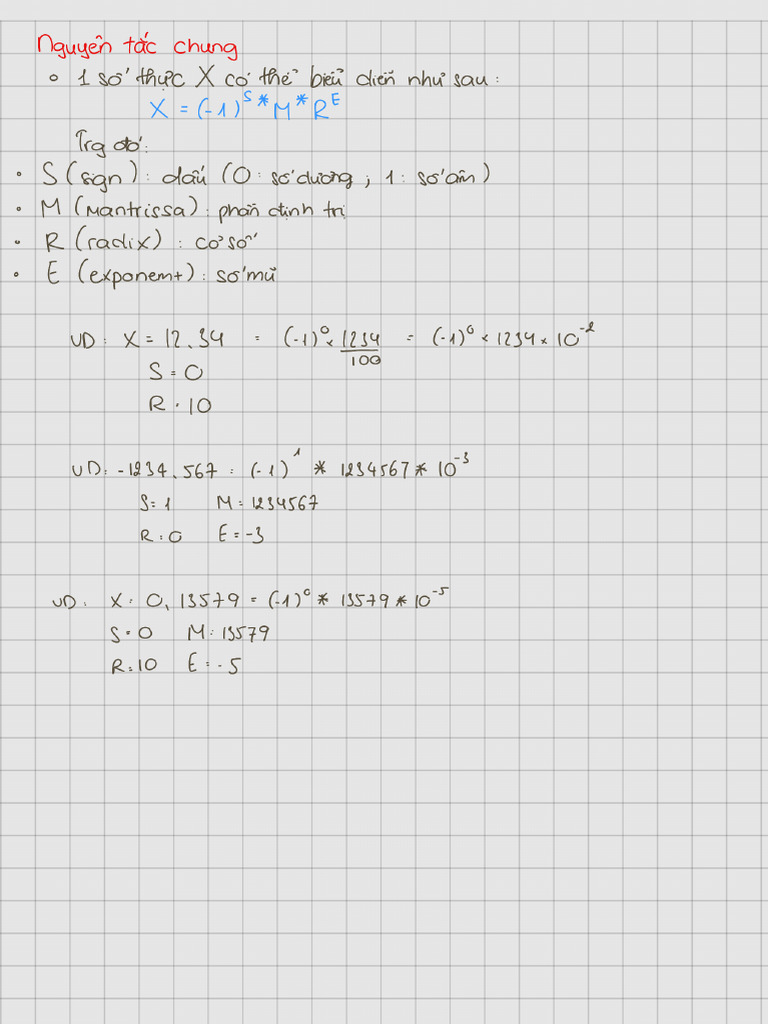 Nguyên tắc chung
◦ 1 số thực X có thể biểu diễn như sau:
X = (-1)^S * M * R^E
Trg đó:
• S (sign): dấu (0: số dương; 1: số âm)
• M (Mantrissa): phần định trị
• R (radix): cơ số
• E (exponemt): số mũ
VD: X = 12.34 = (-1)^0 × 1234/100 = (-1)^0 × 1234 × 10^-2
S = 0
R = 10
VD: -1234.567 = (-1)^1 * 1234567 * 10^-3
S = 1 M = 1234567
R = 0 E = -3
VD: X = 0,13579 = (-1)^0 * 13579 * 10^-5
S = 0 M = 13579
R = 10 E = -5